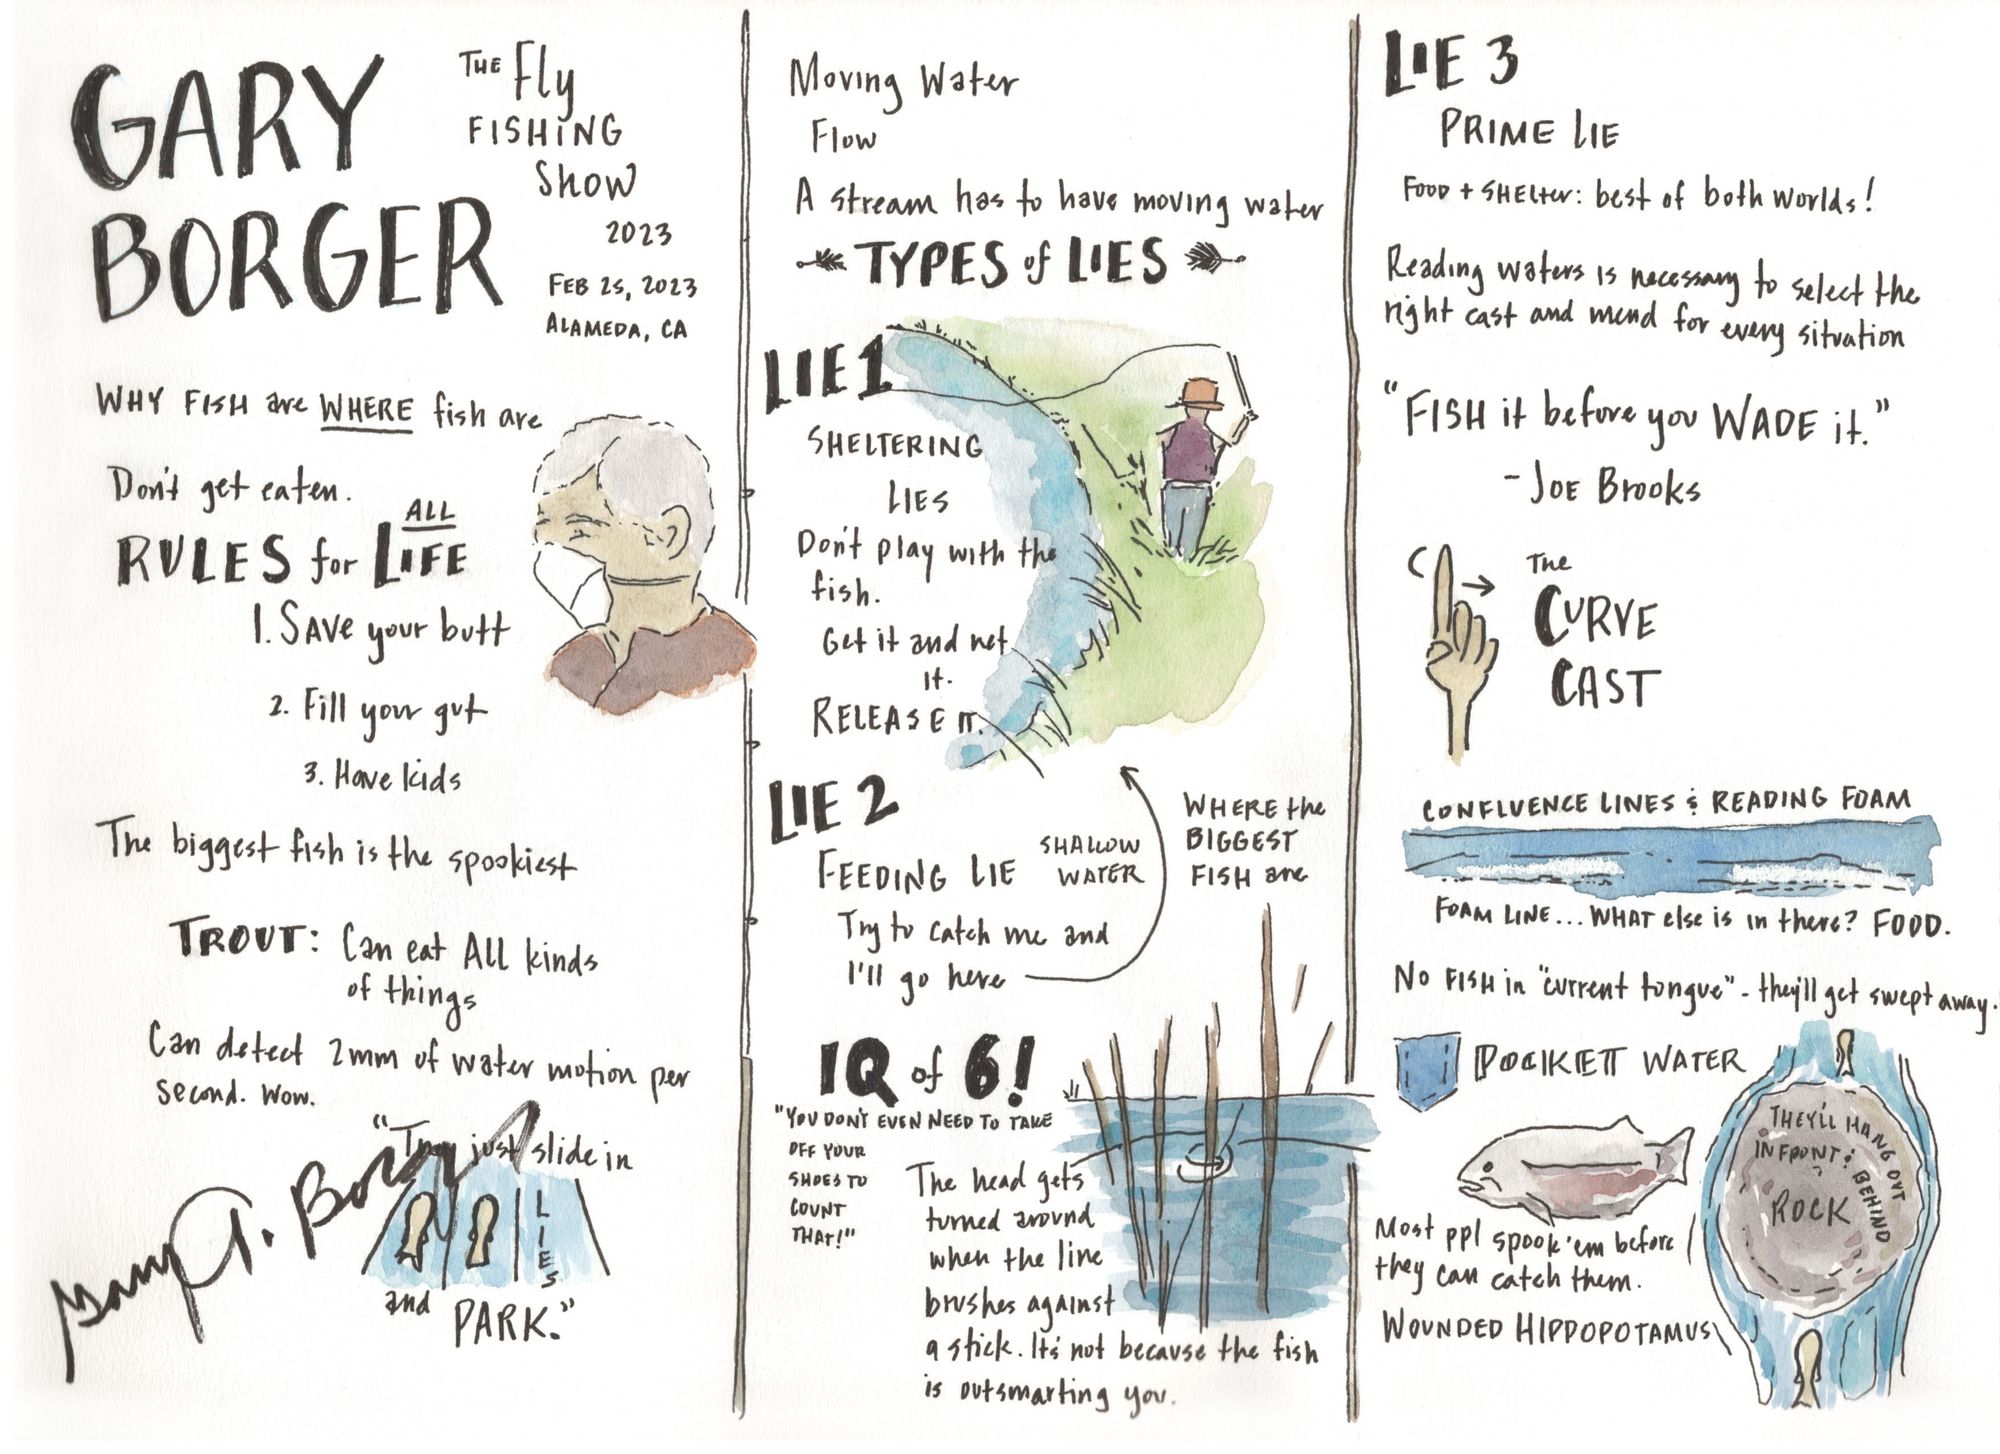 GARY
BORGER
THE Fly
FISHING
Show
2023
FEB 25, 2023
ALAMEDA, CA
WHY FISH are WHERE fish are
Don't get eaten.
RULES for ALL LIFE
1. SAVE your butt
2. Fill your gut
3. Have kids
The biggest fish is the spookiest
TROUT: Can eat All kinds
of things
Can detect 2mm of water motion per
second. Wow.
"They just slide in
LIES
and PARK."
Gary A. Borger
Moving Water
Flow
A stream has to have moving water
TYPES of LIES
LIE 1
SHELTERING
LIES
Don't play with the
fish.
Get it and net
it.
RELEASE IT.
LIE 2
FEEDING LIE
SHALLOW
WATER
Try to catch me and
I'll go here
WHERE the
BIGGEST
FISH are
IQ of 6!
"YOU DON'T EVEN NEED TO TAKE
OFF YOUR
SHOES TO
COUNT
THAT!"
The head gets
turned around
when the line
brushes against
a stick. It's not because the fish
is outsmarting you.
LIE 3
PRIME LIE
FOOD + SHELTER: best of both worlds!
Reading waters is necessary to select the
right cast and mend for every situation
"FISH it before you WADE it."
- JOE Brooks
The
CURVE
CAST
CONFLUENCE LINES & READING FOAM
FOAM LINE... WHAT else is in there? FOOD.
No FISH in "current tongue" - they'll get swept away.
POCKET WATER
THEY'LL HANG OUT
IN FRONT & BEHIND
ROCK
Most ppl spook 'em before
they can catch them.
WOUNDED HIPPOPOTAMUS